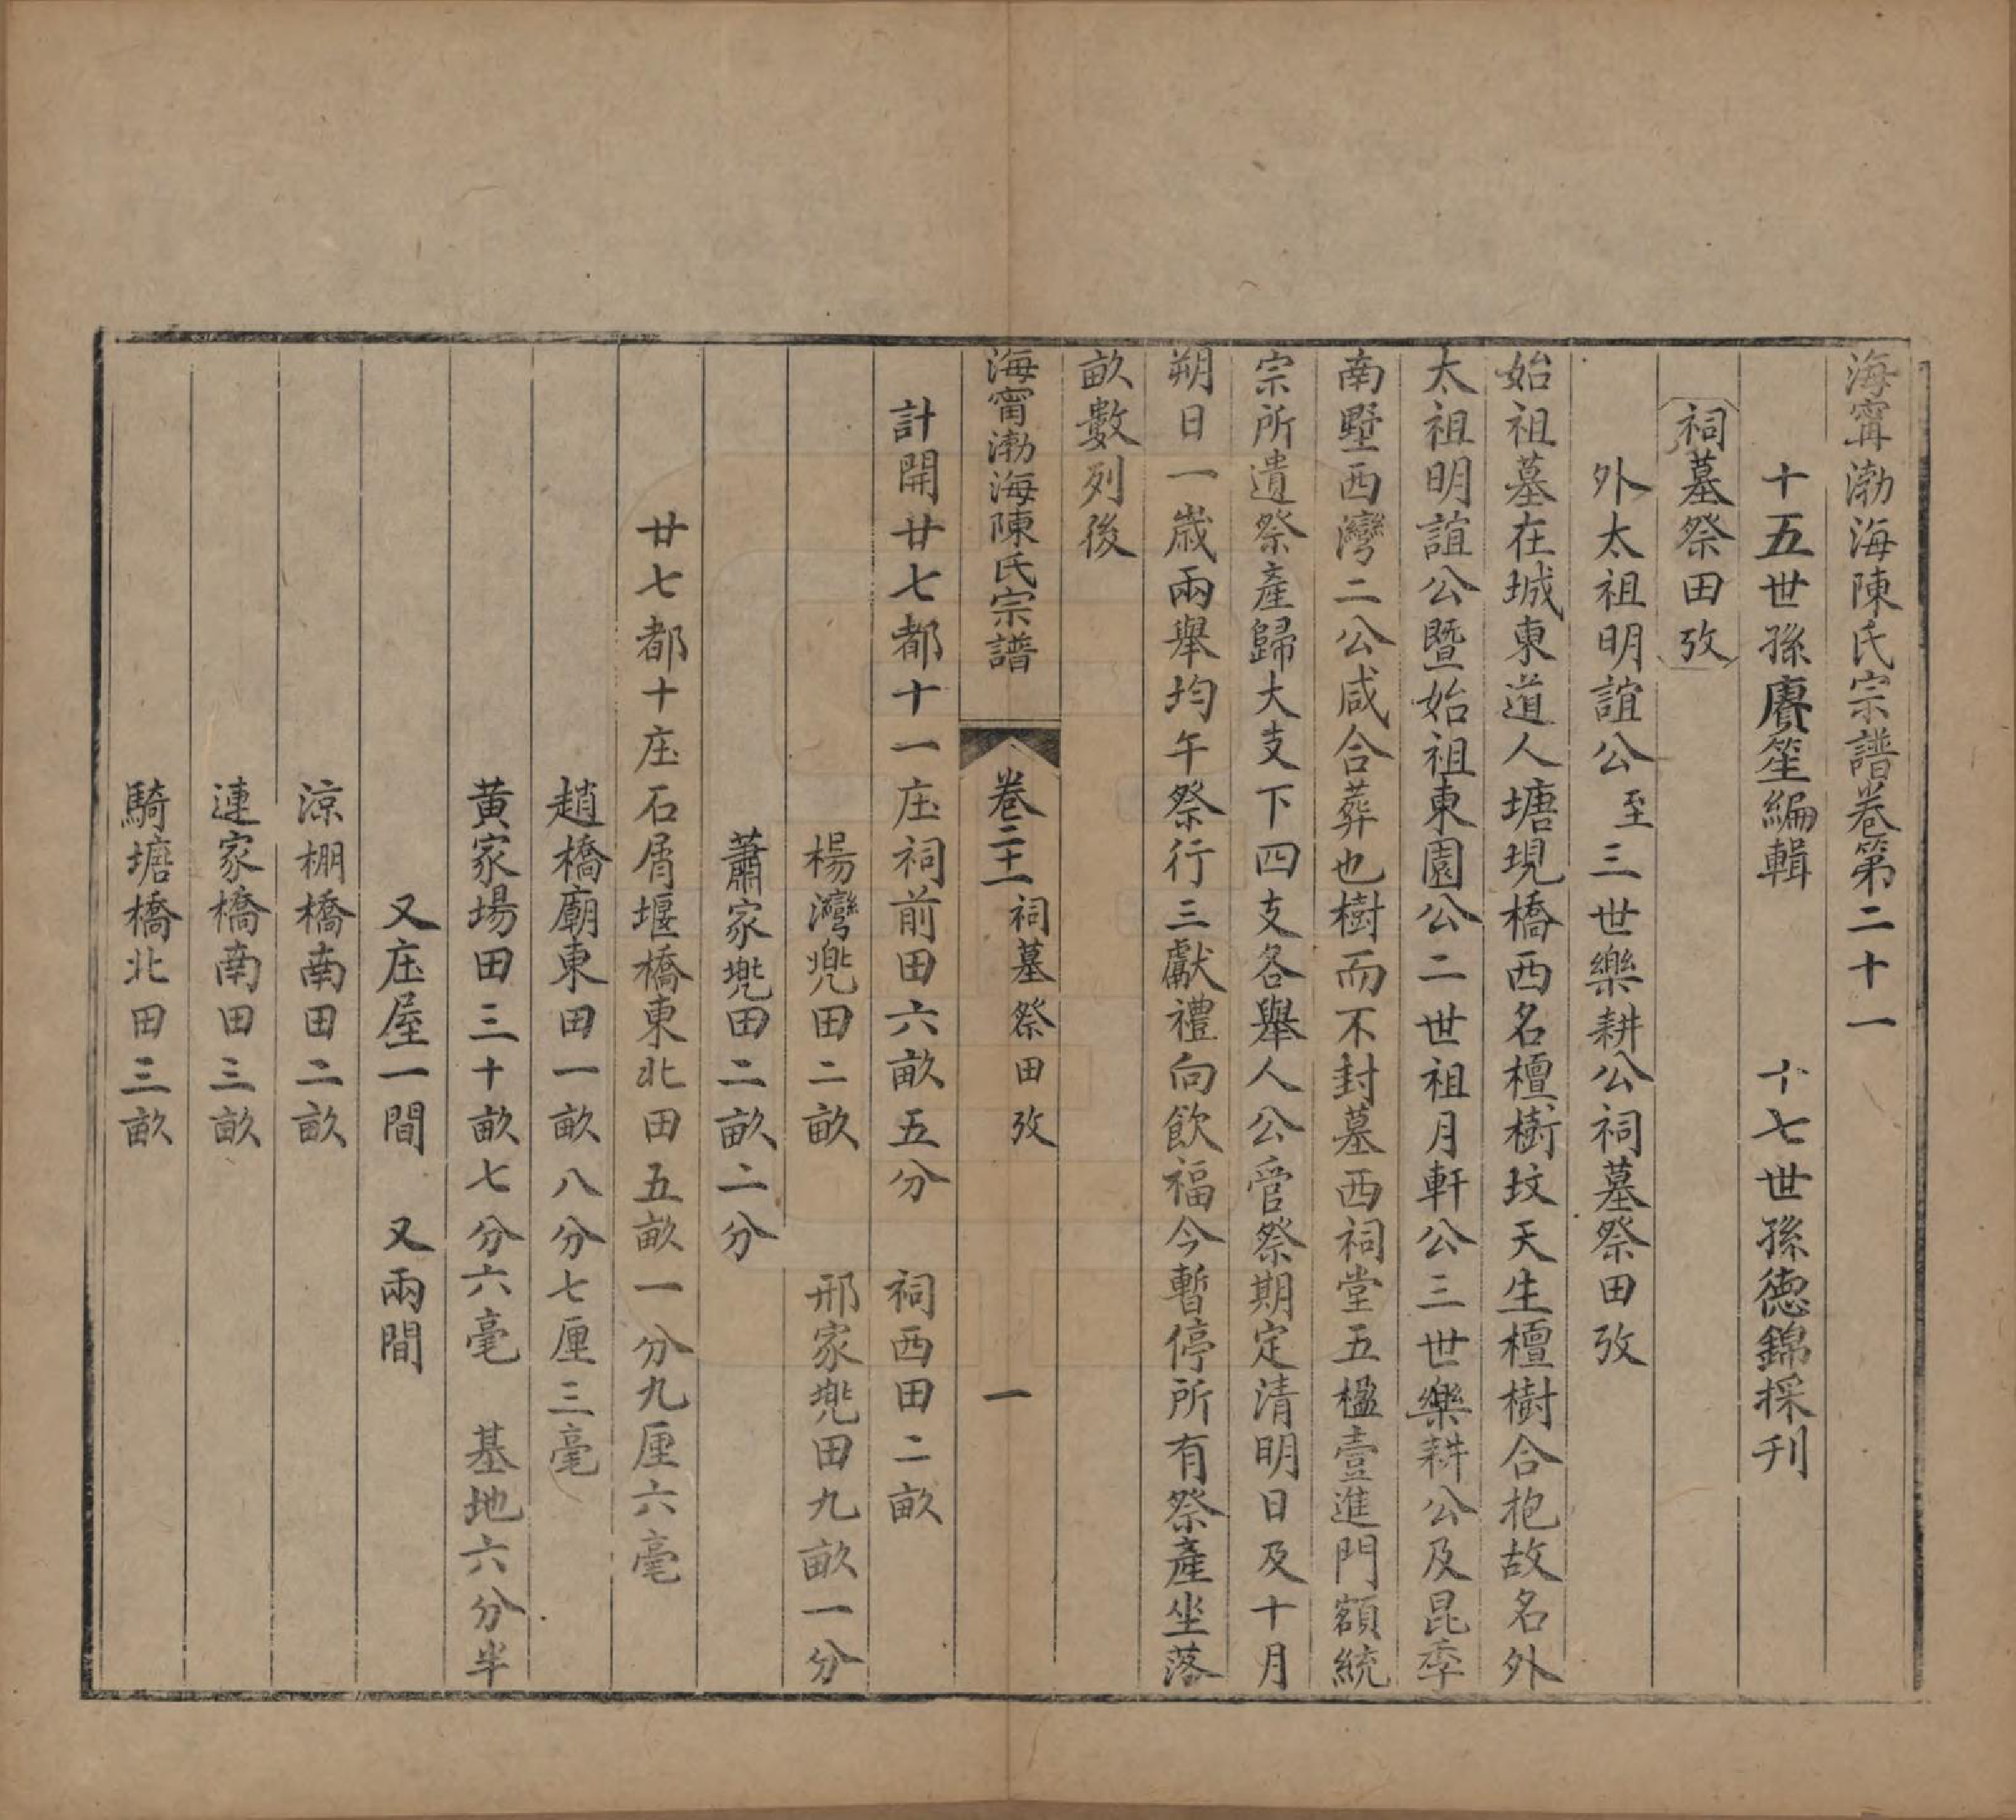 海甯渤海陳氏宗譜卷第二十一
十五世孫賡笙編輯　十七世孫德錦採刋
祠墓祭田攷
外太祖明誼公至三世樂耕公祠墓祭田攷
始祖墓在城東道人塘現橋西名檀樹坟天生檀樹合抱故名外
太祖明誼公暨始祖東園公二世祖月軒公三世樂耕公及昆季
南墅西灣二公咸合葬也樹而不封墓西祠堂五楹壹進門額統
宗所遺祭產歸大支下四支各舉人公管祭期定清明日及十月
朔日一歲兩舉均午祭行三獻禮向飲福今暫停所有祭產坐落
畝數列後
海甯渤海陳氏宗譜　卷二十一　祠墓祭田攷　一
計開廿七都十一庄祠前田六畝五分　祠西田二畝
楊灣兠田二畝　邢家兠田九畝一分
蕭家兠田二畝二分
廿七都十庄石屑堰橋東北田五畝一分九厘六毫
趙橋廟東田一畝八分七厘三毫
黃家場田三十畝七分六毫　基地六分半
又庄屋一間　又兩間
涼棚橋南田二畝
連家橋南田三畝
騎塘橋北田三畝